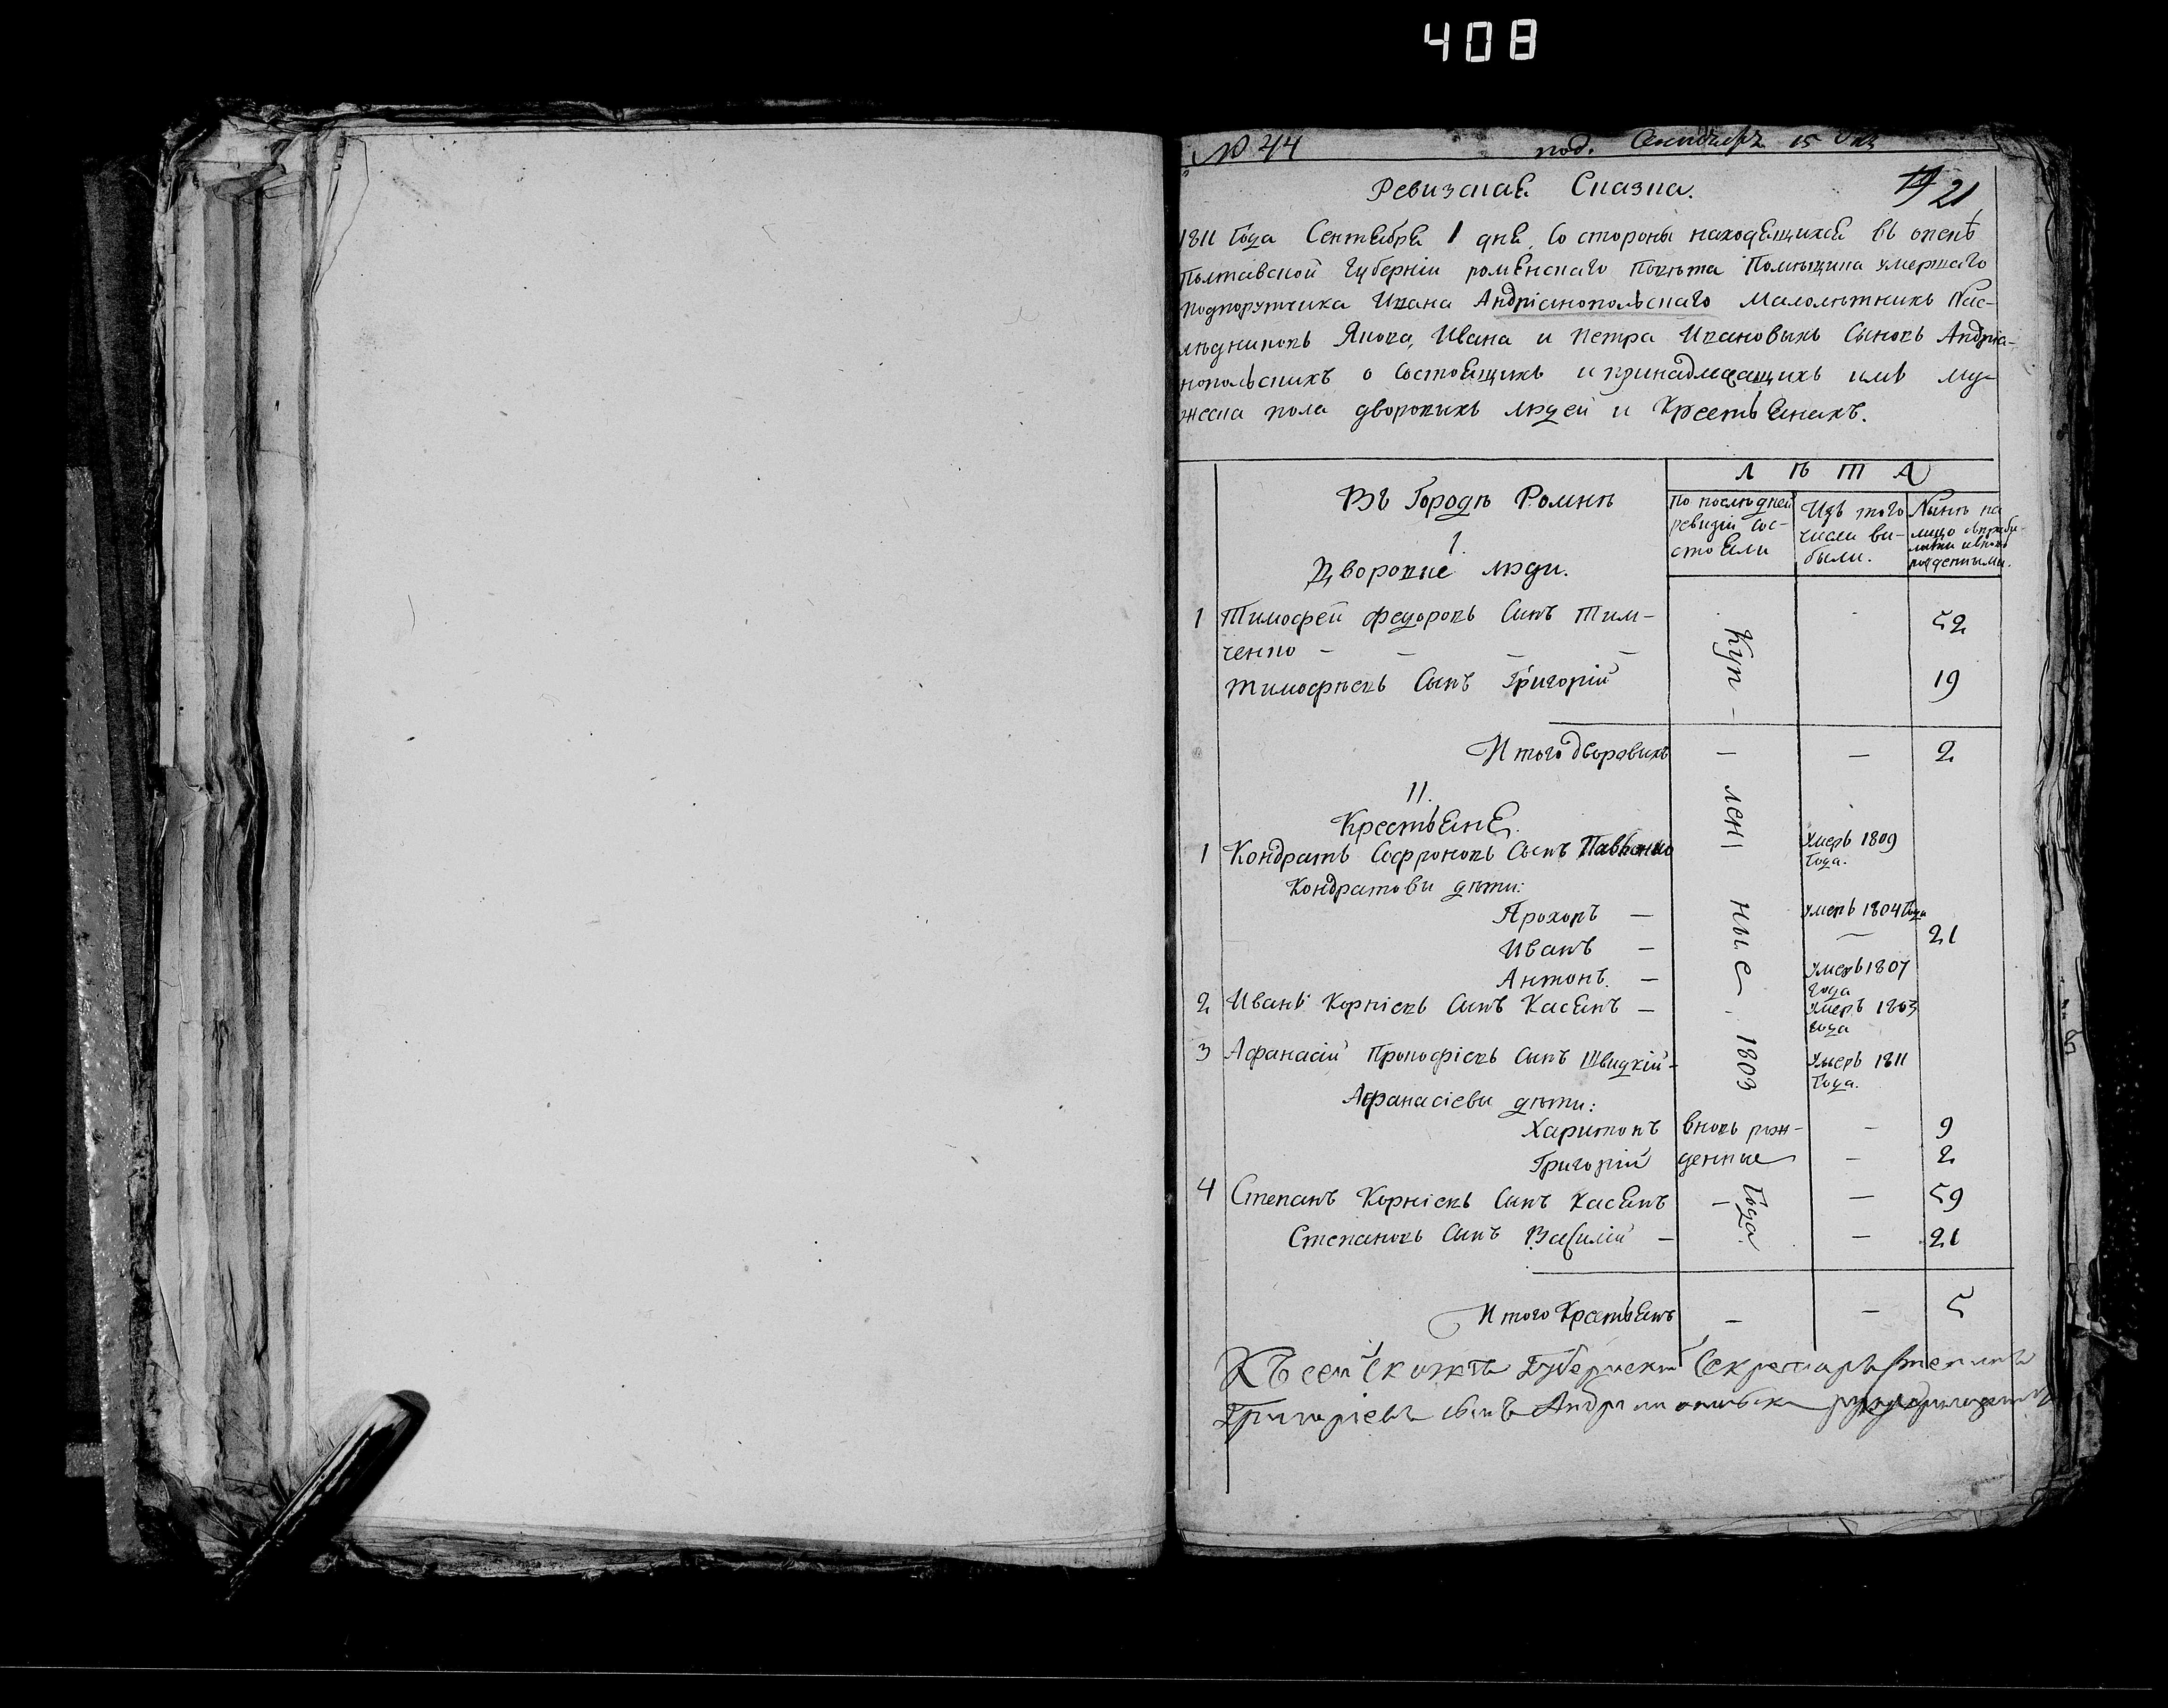 408
№ 44 под. Сентября 15 дня
Ревизская Сказка.
19 21
1811 Года Сентября 1 дня, Со стороны находящихся въ опекѣ
Полтавской Губерніи роменскаго Повѣта Помѣщика умершаго
Подпорутчика Ивана Андріанопольскаго Малолѣтникъ Нас-
лѣдниковъ Якова, Ивана и Петра Ивановыхъ Сыновъ Андріа-
нопольскихъ о Состоящихъ и принадлежащихъ имъ му-
жеска пола дворовыхъ людей и Крестьянахъ.
Л Ѣ Т А
Въ Городѣ Ромнѣ
По послѣдней ревизіи сос- стояли
Изъ того числа вы- были.
Нынѣ на лицо рожденными.
1.
Дворовые люди.
1 Тимофей федоровъ Сынъ Тим- 52
ченко – – – –
Тимофѣевъ Сынъ Григорій 19
Итого дворовихъ – – 2
II.
Крестьяне.
1 Кондратъ Софроновъ Сынъ Павленко Умеръ 1809 Года.
Кондратови дѣти:
Прохоръ – умеръ 1804 Года
Иванъ – – 21
Антонъ – Умеръ 1807 года
2 Иванъ Корніевъ Сынъ Касянъ – Умеръ 1803 года
3 Афанасій Прокофіевъ Сынъ Швидкій – Умеръ 1811 Года.
Афанасіеви дѣти:
Харитонъ вновь рож- – 9
Григорій денные – 2
4 Степанъ Корніевъ Сынъ Касянъ – – 59
Степановъ Сынъ Василій – – 21
Куп – лен ные 1803 Года
Итого Крестьянъ – – 5
Къ сей Сказкѣ Губернский Секретарь Степанъ
Григоріевъ сынъ Андріанопольски руку приложилъ